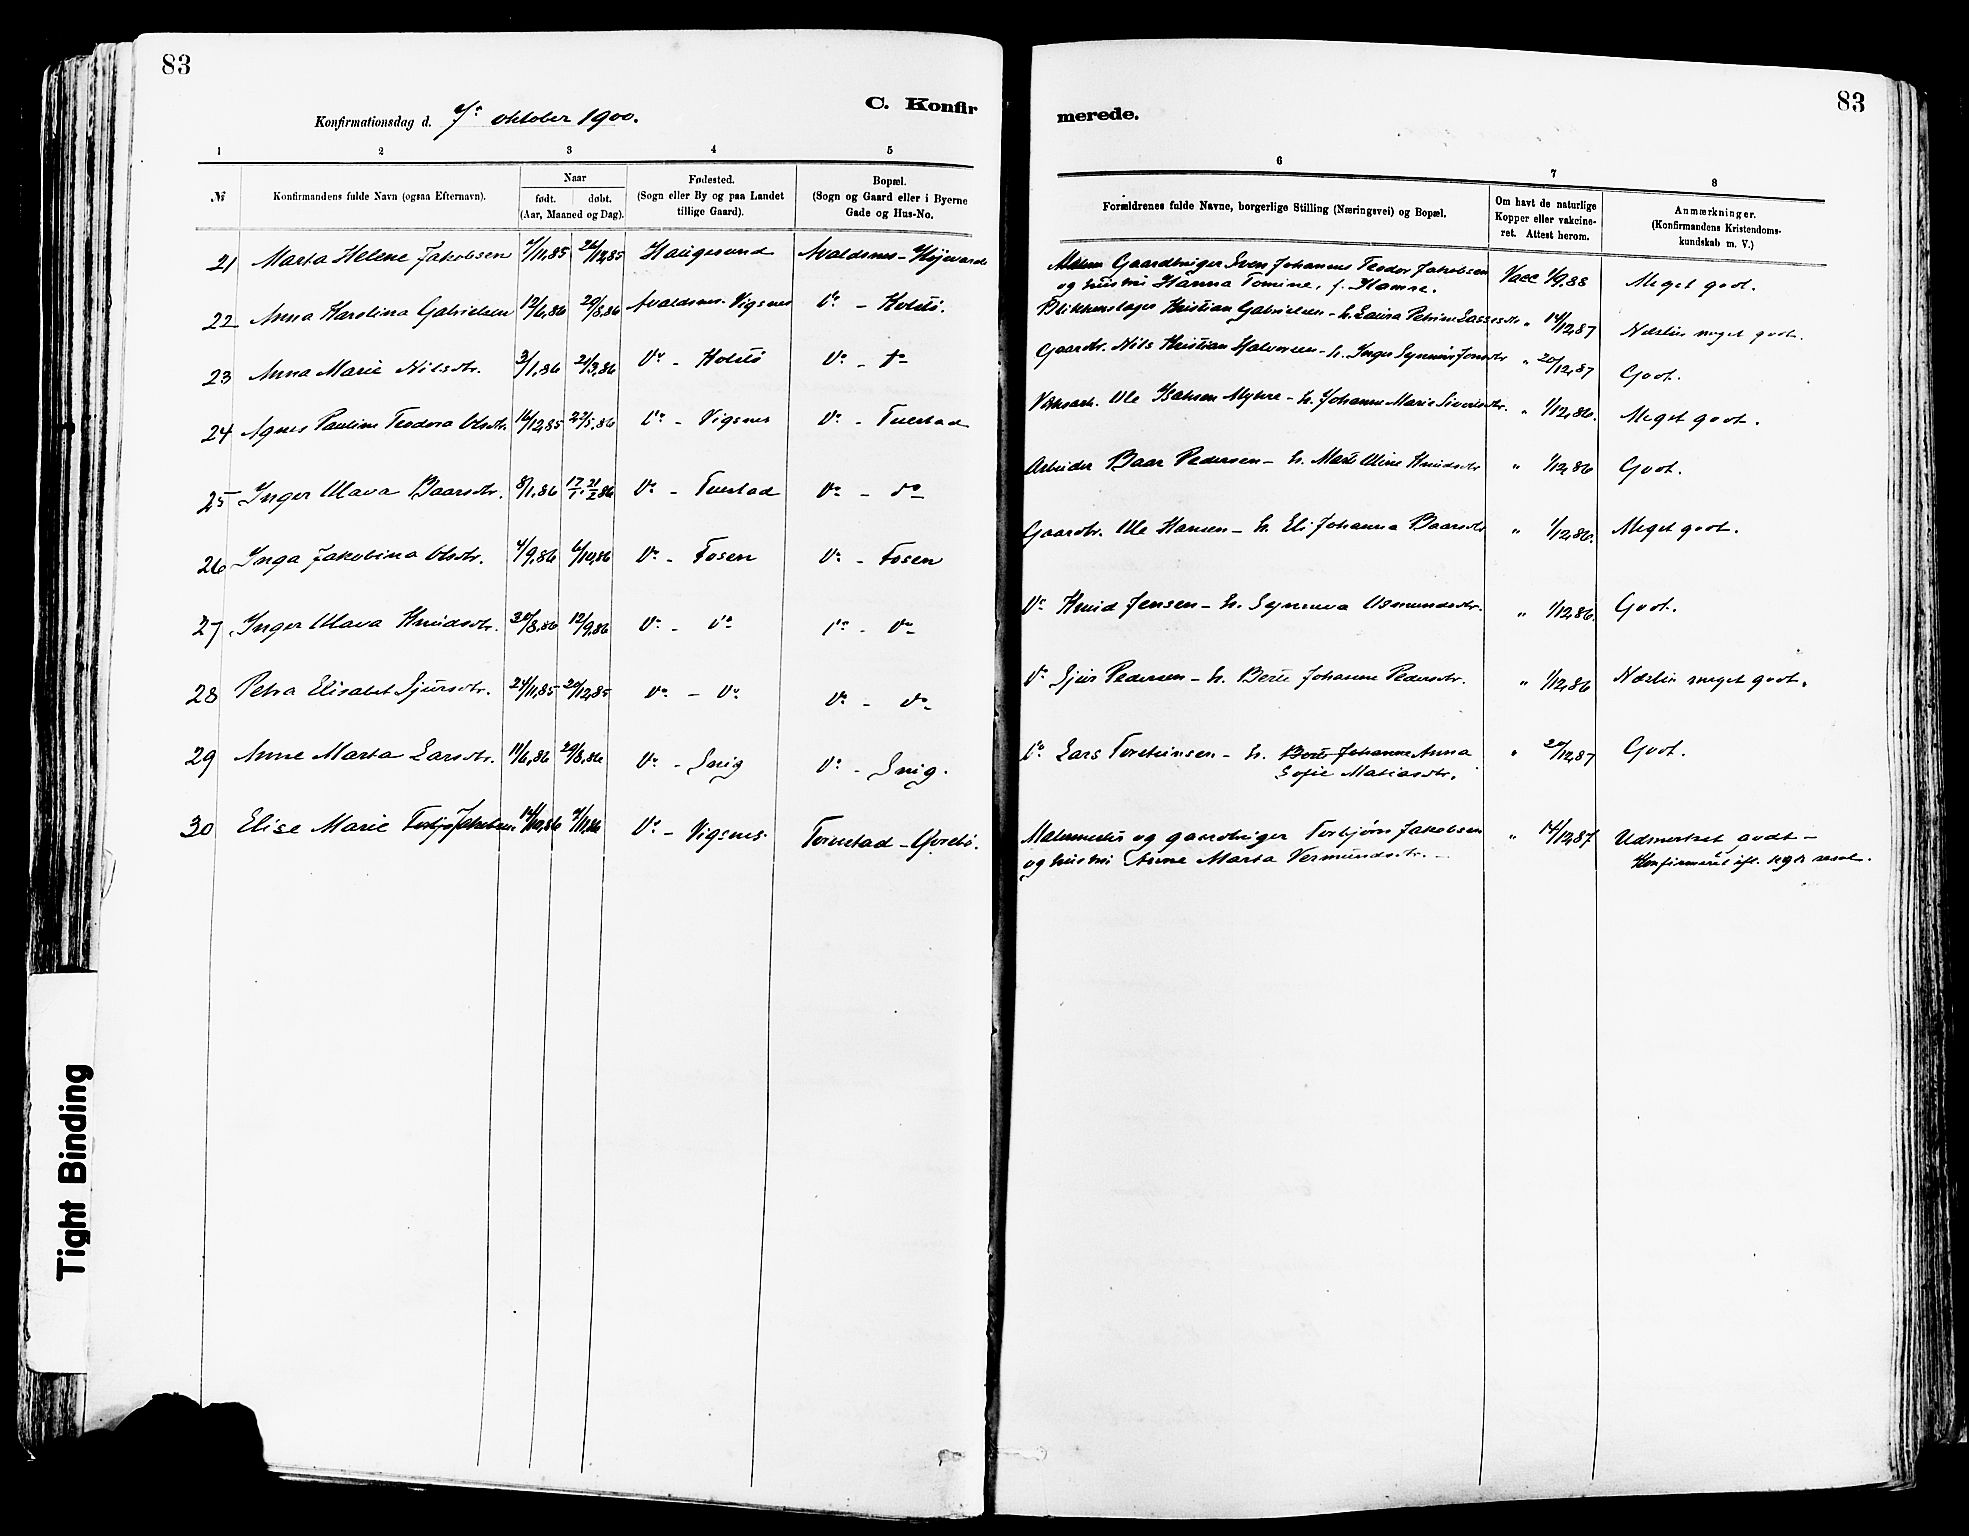 83
83
C. Konfir
merede.
Konfirmationsdag d. 7de oktober 1900.
1 2 3 4 5
6 7 8
№ Konfirmandens fulde Navn (ogsaa Efternavn). Naar født. døbt. (Aar, Maaned og Dag). Fødested. (Sogn eller By og paa Landet tillige Gaard). Bopæl. (Sogn og Gaard eller i Byerne Gade og Hus-No.
Forældrenes fulde Navne, borgerlige Stilling (Næringsvei) og Bopæl. Om havt de naturlige Kopper eller vakcineret. Attest herom. Anmærkninger. (Konfirmandens Kristendomskundskab m. V.)
21 Marta Helene Jakobsen 7/11,85 26/12,85 Haugesund Avaldsnes - Höjevarde
Gaardbruger Sven Johannes Teodor Jakobsen Vacc 1/9,88 Meget godt.
og hustru Hanna Tomine, f. Hamre.
22 Anna Karolina Gabrielsen 12/6,86 29/8,86 Avaldsnes - Vigsnes Do - Holstö.
Blikkenslager Kristian Gabrielsen - h. Laura Petrine Lassesdtr. " 14/12,87 Næsten meget godt.
23 Anna Marie Nilsdtr. 3/1,86 21/3,86 Do - Holstö Do - do
Gaardbr. Nils Kristian Halvorsen - h. Inger Synneve Jonsdtr " 20/12,87 Godt.
24 Agnes Pauline Teodora Olsdtr. 16/12,85 22/5,86 Do - Vigsnes Do - Tuestad
Ole Isaksen Myhre - h. Johanne Marie Sivertsdtr. " 1/12,86. Meget godt.
25 Inger Olava Baarsdtr. 8/1,86 17/1. 21/2 86 Do - Tuestad Do - do
Arbeider Baar Pedersen - h. Marte Oline Knudsdtr " 1/12,86 Godt.
26 Inga Jakobina Olsdtr. 4/9,86 6/10,86 Do - Fosen Do - Fosen
Gaardbr. Ole Hansen - h. Eli Johanna Baarsdtr " 1/12,86. Meget godt.
27 Inger Olava Knudsdtr. 20/8,86 12/9,86 Do - do Do - Do
Do Knud Jensen - h. Synneva Osmundsdtr. " 1/12,86. Godt.
28 Petra Elisabet Sjursdtr. 24/11,85 20/12,85 Do - Do Do - do
Do Sjur Pedersen - h. Berte Johanne Pedersdtr. " 1/12,86 Næsten meget godt.
29 Anne Marta Larsdtr. 11/6,86 29/8,86 Do - Snig Do - Snig.
Do Lars Torsteinsen - h. Berte Johanne Anna " 20/12,87 Godt.
Sofie Matiasdtr.
30 Elise Marie Jakobsen 14/10,86 7/11,86 Do - Vigsnes. Torvestad - Osnes.
Malermester og gaardbruger Torbjörn Jakobsen " 14/12,87 Udmerket godt -
og hustru Anne Marta Vermundsdtr. - Konfirmeret eft. kgl. resol.
Tight Binding